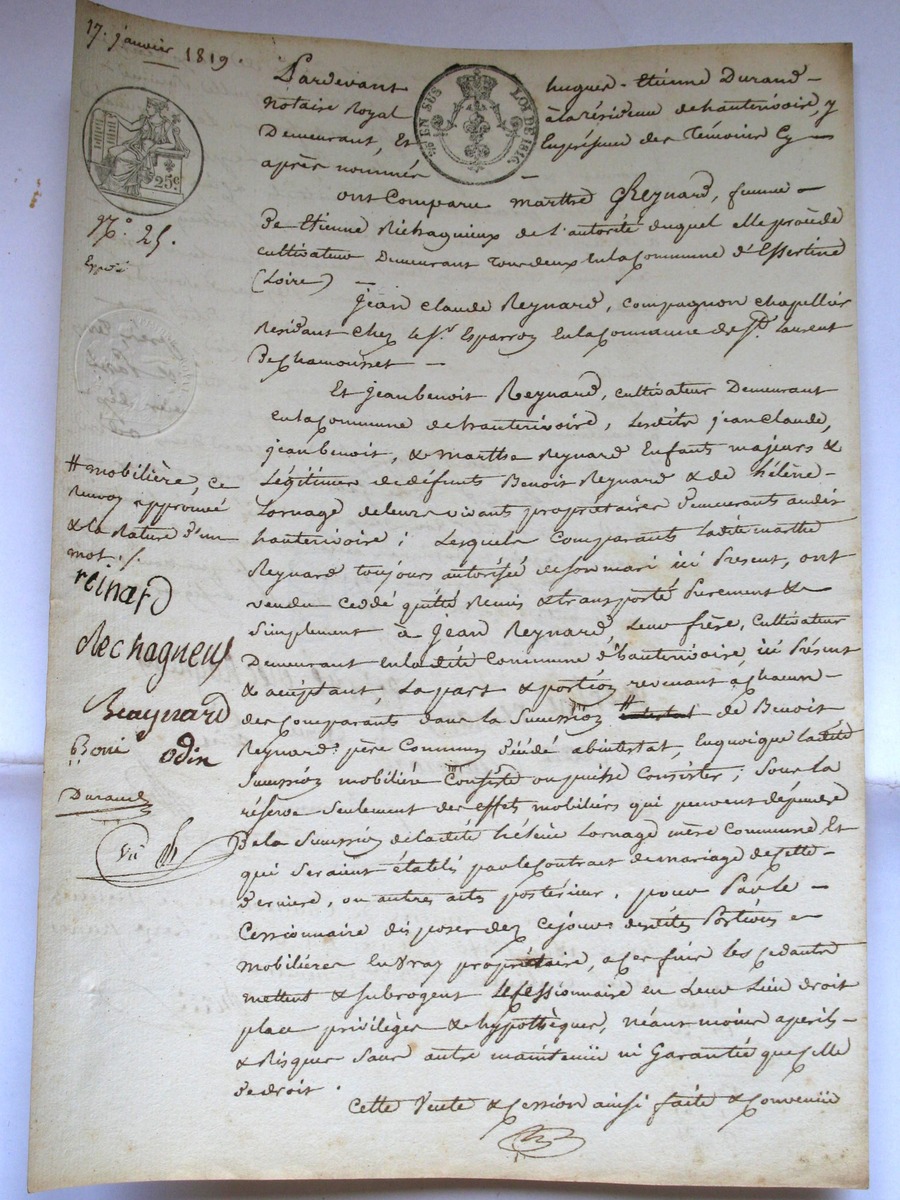 17. janvier 1819.
Pardevant hugues-Etienne Durand
notaire Royal à la résidence de hauterivoire, y
Demeurant, Et En présence des Témoins Cy
après nommés
5% EN SUS LOI DE 1816.
25c
N.° 25.
ont Comparu marthe Reynard, femme
De Etienne Richagnieux de l'autorité duquel elle procède
cultivateur Demeurant Tous deux En la Commune d'Essertine
(Loire)
Jean Claude Reynard, Compagnon Chapellier
Résidant Chez le Sr. Esparron En la Commune de St. Laurent
De Chamousset
Et jean benoit Reynard, cultivateur Demeurant
en la Commune de hauterivoire, Lesdits jean Claude,
jean benoit, & marthe Reynard Enfants majeurs &
Légitimes de défunts Benoit Reynard & de hélène
Lornage de leurs vivants propriétaires Demeurants audit
hauterivoire; Lesquels Comparants Ladite marthe
Reynard toujours autorisée de son mari ici Présent, ont
vendu ceddé quitté Remis & transporté Purement &
Simplement à Jean Reynard, Leur frère, Cultivateur
Demeurant En la dite Commune d'hauterivoire, ici Présent
& acceptant, La part & portion revenant a chacun
des Comparants dans la Succession # de Benoit
Reynard père Commun Décédé abintestat, En quoique ladite
Succession mobilière Consiste ou puisse Consister; Sous la
réserve Seulement des effets mobiliers qui peuvent dépendre
De la Succession de ladite hélène Lornage mère Commune Et
qui Seraient établis par le Contrat de mariage de Cette
dernière, ou autres actes postérieur, pour Par le
Cessionnaire disposer dez Cejour desdites Portions
mobilières En Vray propriétaire, a ces fins les Cédants
mettent & subrogent le Cessionnaire en Leur Lieu droit
place privilèges & hypothèques, néant moins a perils
& Risques Sans autre maintenüe ni Garantie que Celle
De droit.
Cette Vente & Cession ainsi faite & Convenüe
# mobilière, Ce
Renvoy approuvé
& la Rature d'un
mot ./.
reinard
Rechagneux
Reaynard
Boni
odin
Durand